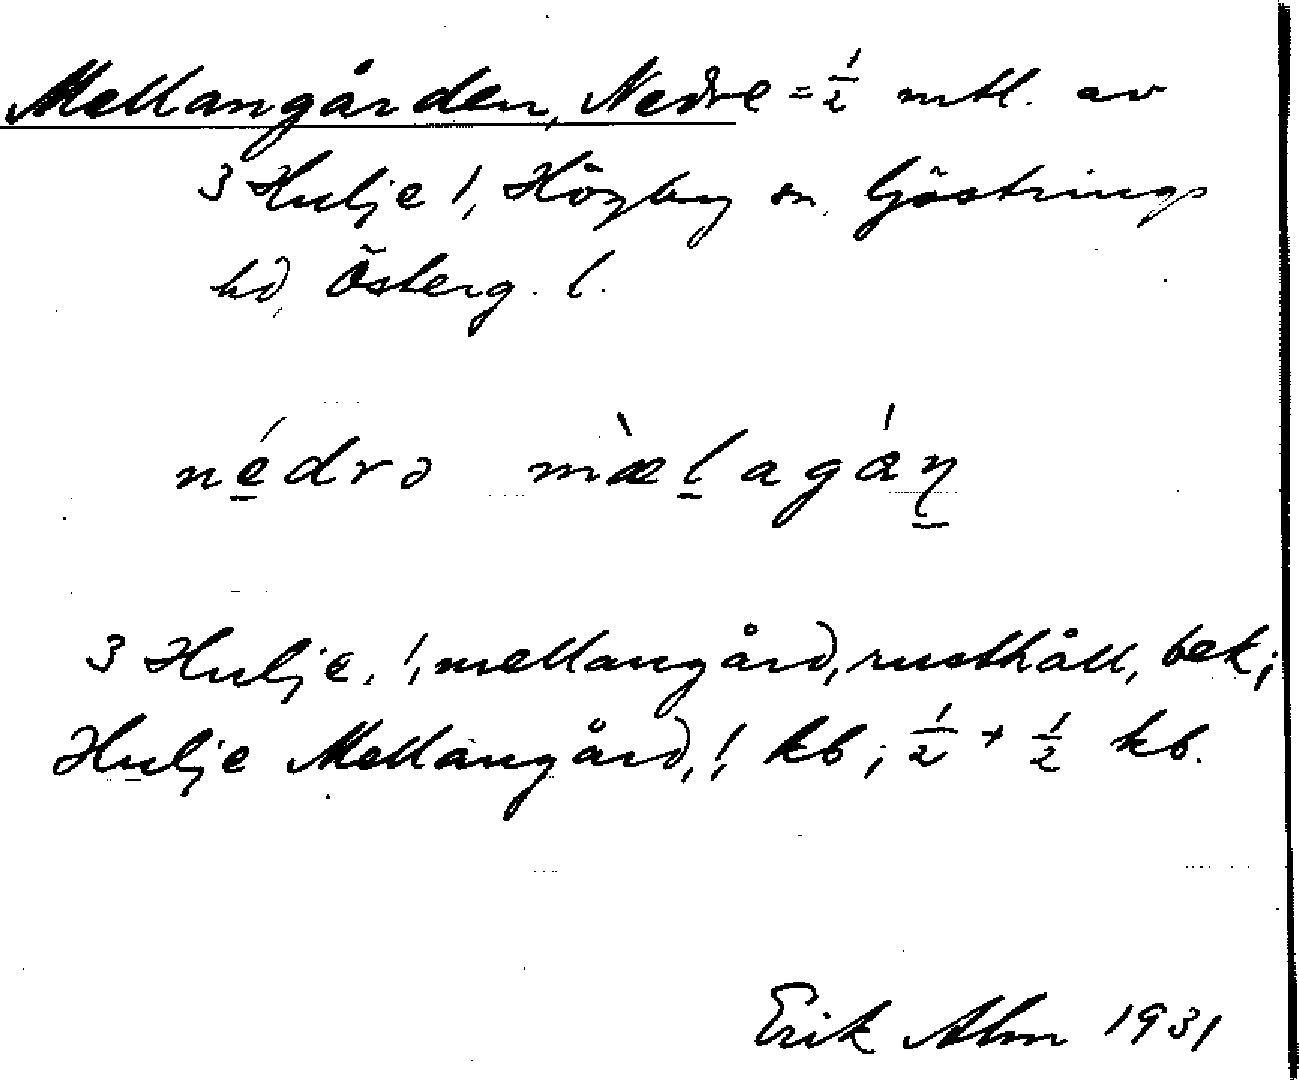 Mellangården, Nedre = ½ mtl. av
3 Hulje 1, Högby sn, Göstrings
hd, Österg. l.
nédrə mæ̀lagáɳ
3 Hulje, 1, mellangård, rusthåll, bek;
Hulje Mellangård, 1, kb; ½ + ½ kb.
Erik Alm 1931